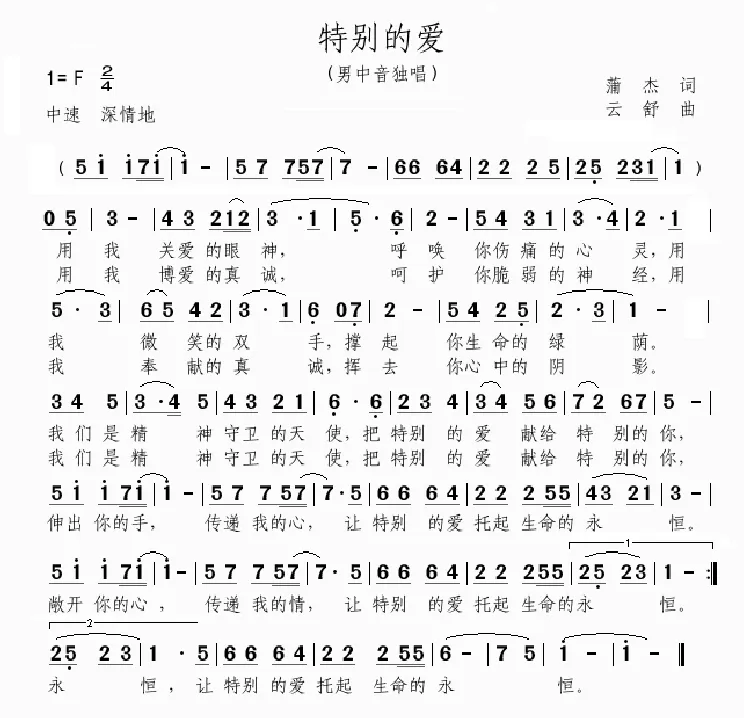 特别的爱
（男中音独唱）
1= F 2/4
蒲 杰 词
中速 深情地
云 舒 曲
（ 5 1 1 7 1 | 1 - | 5 7 7 5 7 | 7 - | 6 6 6 4 | 2 2 2 5 | 2 5 2 3 1 | 1 ）
0 5 | 3 - | 4 3 2 1 2 | 3 · 1 | 5 · 6 | 2 - | 5 4 3 1 | 3 · 4 | 2 · 1 |
用 我 关爱 的眼 神， 呼 唤 你伤 痛的 心 灵，用
用 我 博爱 的真 诚， 呵 护 你脆 弱的 神 经，用
5 · 3 | 6 5 4 2 | 3 · 1 | 6 0 7 | 2 - | 5 4 2 5 | 2 · 3 | 1 - |
我 微 笑的 双 手，撑 起 你生 命的 绿 荫。
我 奉 献的 真 诚，挥 去 你心 中的 阴 影。
3 4 5 | 3 · 4 5 | 4 3 2 1 | 6 · 6 | 2 3 4 | 3 4 5 6 | 7 2 6 7 | 5 - |
我们 是精 神 守卫 的天 使，把 特别 的 爱 献给 特 别的 你，
我们 是精 神 守卫 的天 使，把 特别 的 爱 献给 特 别的 你，
5 1 1 7 1 | 1 - | 5 7 7 5 7 | 7 · 5 | 6 6 6 4 | 2 2 2 5 5 | 4 3 2 1 | 3 - |
伸出 你的手， 传递 我的心， 让 特别 的爱 托起 生命的 永 恒。
1
5 1 1 7 1 | 1 - | 5 7 7 5 7 | 7 · 5 | 6 6 6 4 | 2 2 2 5 5 | 2 5 2 3 | 1 - :|
敞开 你的心， 传递 我的情， 让 特别 的爱 托起 生命的 永 恒。
2
2 5 2 3 | 1 · 5 | 6 6 6 4 | 2 2 2 5 5 | 6 - | 7 5 | 1 - | 1 - ‖
永 恒，让 特别 的爱 托起 生命的 永 恒。